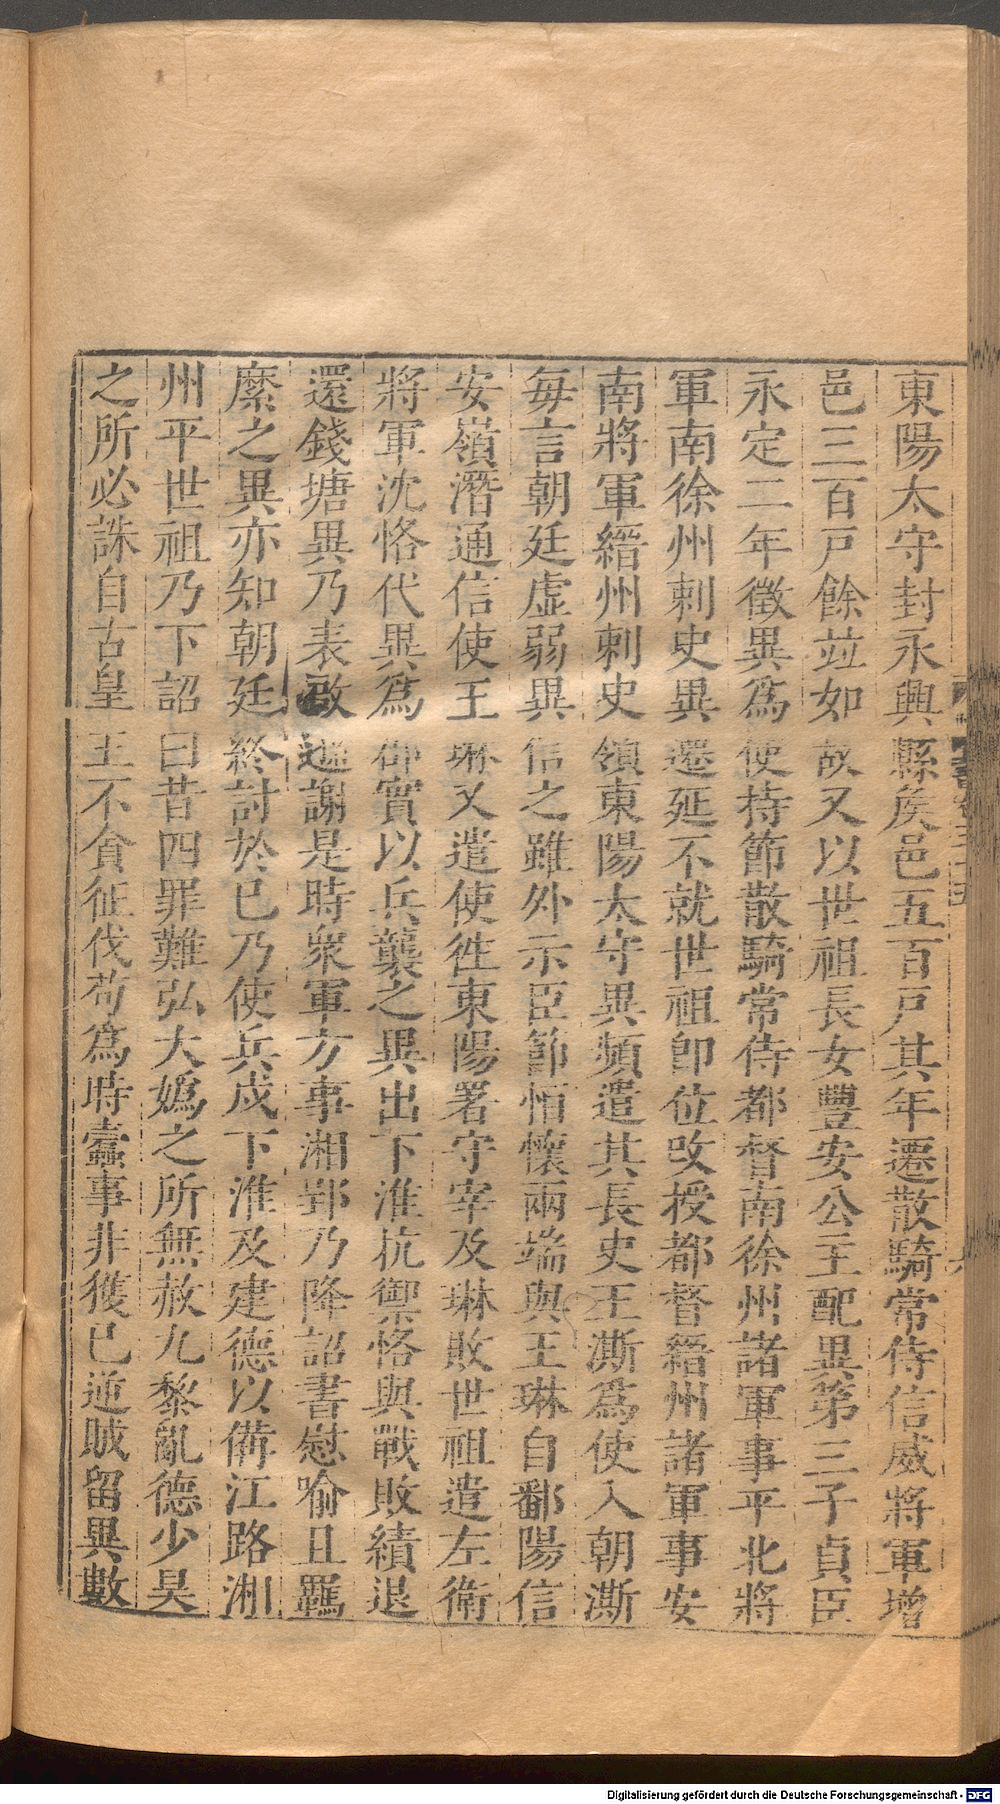 東陽太守封永興縣矦邑五百戸其年遷散騎常侍信威將軍增
邑三百戸餘竝如故又以世祖長女豐安公主配異第三子貞臣
永定二年徵異爲使持節散騎常侍都督南徐州諸軍事平北將
軍南徐州刺史異遷延不就世祖卽位改授都督縉州諸軍事安
南將軍縉州刺史領東陽太守異頻遣其長史王澌爲使入朝澌
每言朝廷虛弱異信之雖外示臣節恒懷兩端與王琳自鄱陽信
安嶺潛通信使王琳又遣使徃東陽署守宰及琳敗世祖遣左衛
將軍沈恪代異爲郡實以兵襲之異出下淮抗禦恪與戰敗績退
還錢塘異乃表啟遜謝是時衆軍方事湘郢乃降詔書慰喻且羈
縻之異亦知朝廷終討於已乃使兵戍下淮及建德以備江路湘
州平世祖乃下詔曰昔四罪難弘大嬀之所無赦九黎亂德少昊
之所必誅自古皇王不貪征伐苟爲時蠹事非獲已逆賊留異數
Digitalisierung gefördert durch die Deutsche Forschungsgemeinschaft - DFG